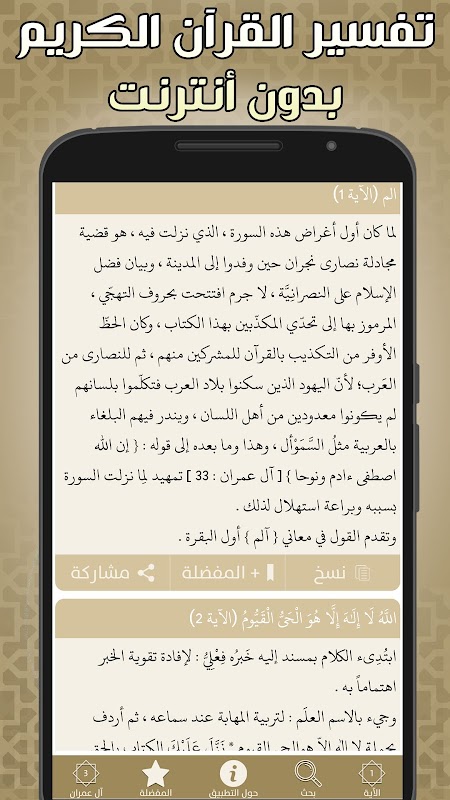 تفسير القرآن الكريم
بدون أنترنت
الم (الآية 1)
لما كان أول أغراض هذه السورة ، الذي نزلت فيه ، هو قضية
مجادلة نصارى نجران حين وفدوا إلى المدينة ، وبيان فضل
الإسلام على النصرانيَّة ، لا جرم افتتحت بحروف التهجّي ،
المرموز بها إلى تحدّي المكذّبين بهذا الكتاب ، وكان الحظّ
الأوفر من التكذيب بالقرآن للمشركين منهم ، ثم للنصارى من
العَرب؛ لأنّ اليهود الذين سكنوا بلاد العرب فتكلّموا بلسانهم
لم يكونوا معدودين من أهل اللسان ، ويندر فيهم البلغاء
بالعربية مثلُ السَّمَوْأل ، وهذا وما بعده إلى قوله : { إن الله
اصطفى ءادم ونوحا } [ آل عمران : 33 ] تمهيد لِما نزلت السورة
بسببه وبراعة استهلال لذلك .
وتقدم القول في معاني { آلم } أول البقرة .
نسخ
+ المفضلة
مشاركة
اللَّهُ لَا إِلَهَ إِلَّا هُوَ الْحَيُّ الْقَيُّومُ (الآية 2)
ابتُدِىء الكلام بمسند إليه خَبرُه فِعْلِيُّ : لإفادة تقوية الخبر
اهتماماً به .
وجيء بالاسم العلَم : لتربية المهابة عند سماعه ، ثم أردف
بجملة لا إله إلاّ هو الحي القيوم * نَزَّلَ عَلَيْكَ الكتاب بالحق
الأية
بحث
حول التطبيق
المفضلة
آل عمران
1
3